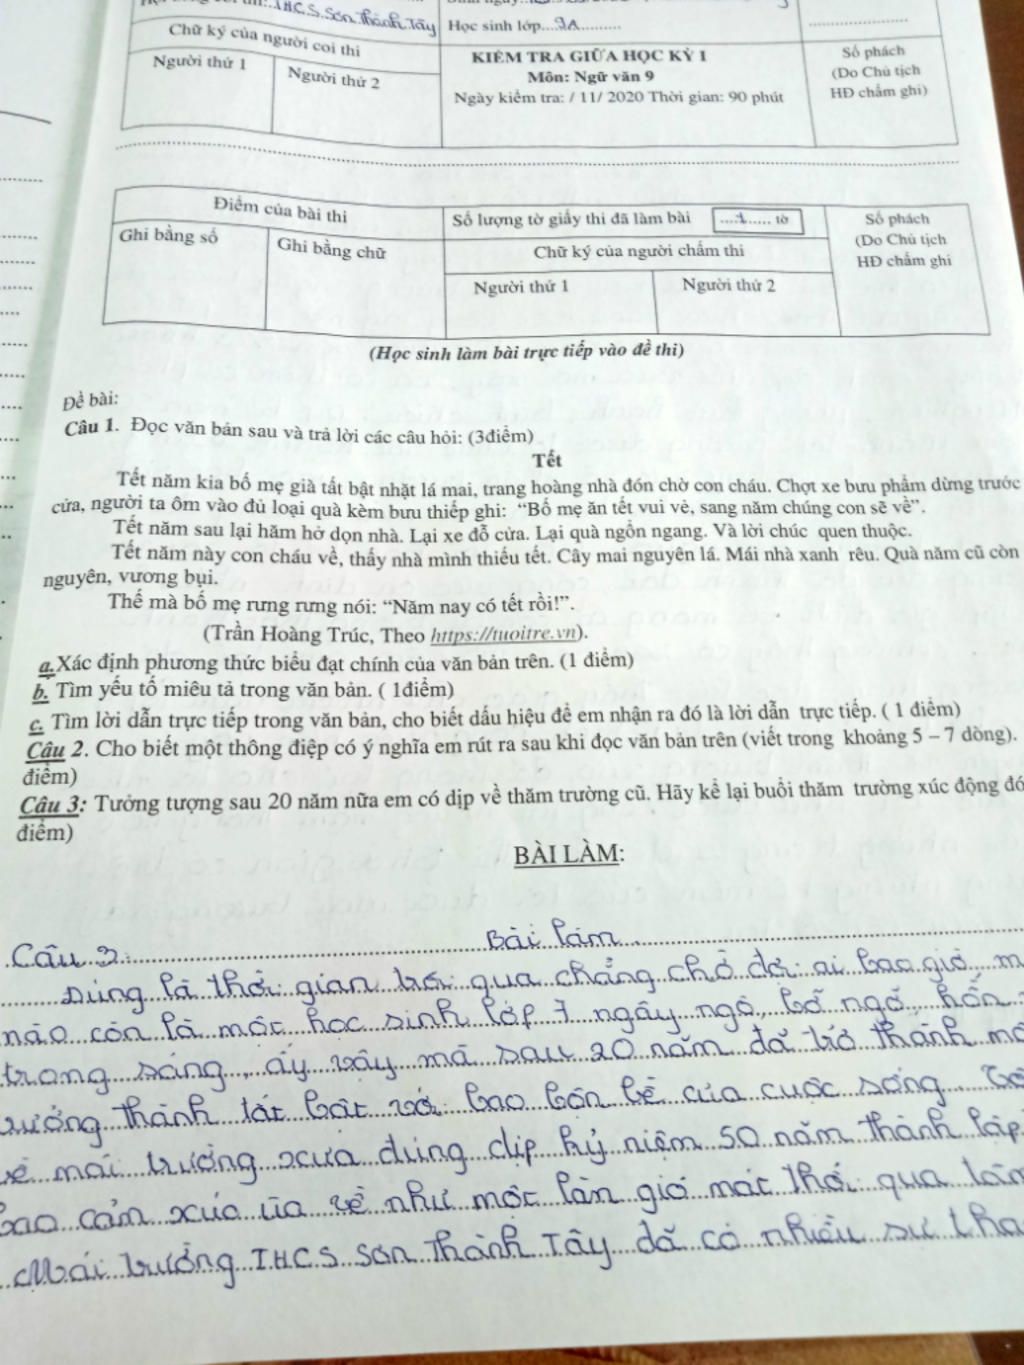 THCS. Sơn Thành Tây
Học sinh lớp....9A.........
Chữ ký của người coi thi
Người thứ 1
Người thứ 2
KIỂM TRA GIỮA HỌC KỲ I
Môn: Ngữ văn 9
Ngày kiểm tra: / 11/ 2020 Thời gian: 90 phút
Số phách
(Do Chủ tịch
HĐ chấm ghi)
Điểm của bài thi
Ghi bằng số
Ghi bằng chữ
Số lượng tờ giấy thi đã làm bài ....1...... tờ
Chữ ký của người chấm thi
Người thứ 1
Người thứ 2
Số phách
(Do Chủ tịch
HĐ chấm ghi
(Học sinh làm bài trực tiếp vào đề thi)
Đề bài:
Câu 1. Đọc văn bản sau và trả lời các câu hỏi: (3điểm)
Tết
Tết năm kia bố mẹ già tất bật nhặt lá mai, trang hoàng nhà đón chờ con cháu. Chợt xe bưu phẩm dừng trước
cửa, người ta ôm vào đủ loại quà kèm bưu thiếp ghi: “Bố mẹ ăn tết vui vẻ, sang năm chúng con sẽ về”.
Tết năm sau lại hăm hở dọn nhà. Lại xe đỗ cửa. Lại quà ngổn ngang. Và lời chúc quen thuộc.
Tết năm này con cháu về, thấy nhà mình thiếu tết. Cây mai nguyên lá. Mái nhà xanh rêu. Quà năm cũ còn
nguyên, vương bụi.
Thế mà bố mẹ rưng rưng nói: “Năm nay có tết rồi!”.
(Trần Hoàng Trúc, Theo https://tuoitre.vn).
a.Xác định phương thức biểu đạt chính của văn bản trên. (1 điểm)
b. Tìm yếu tố miêu tả trong văn bản. ( 1điểm)
c. Tìm lời dẫn trực tiếp trong văn bản, cho biết dấu hiệu để em nhận ra đó là lời dẫn trực tiếp. ( 1 điểm)
Câu 2. Cho biết một thông điệp có ý nghĩa em rút ra sau khi đọc văn bản trên (viết trong khoảng 5 – 7 dòng).
điểm)
Câu 3: Tưởng tượng sau 20 năm nữa em có dịp về thăm trường cũ. Hãy kể lại buổi thăm trường xúc động đó
điểm)
BÀI LÀM:
Bài làm
Câu 3:
Đúng là thời gian trôi qua chẳng chờ đợi ai bao giờ, m
nào còn là một học sinh lớp 7 ngây ngô, bỡ ngỡ, hồn
trong sáng, ấy vậy mà sau 20 năm đã trở thành mộ
trưởng thành tất bật với bao bộn bề của cuộc sống.
về mái trường xưa đúng dịp kỷ niệm 50 năm thành lập
bao cảm xúc ùa về như một làn gió mát thổi qua
Mái trường THCS Sơn Thành Tây đã có nhiều sự tha